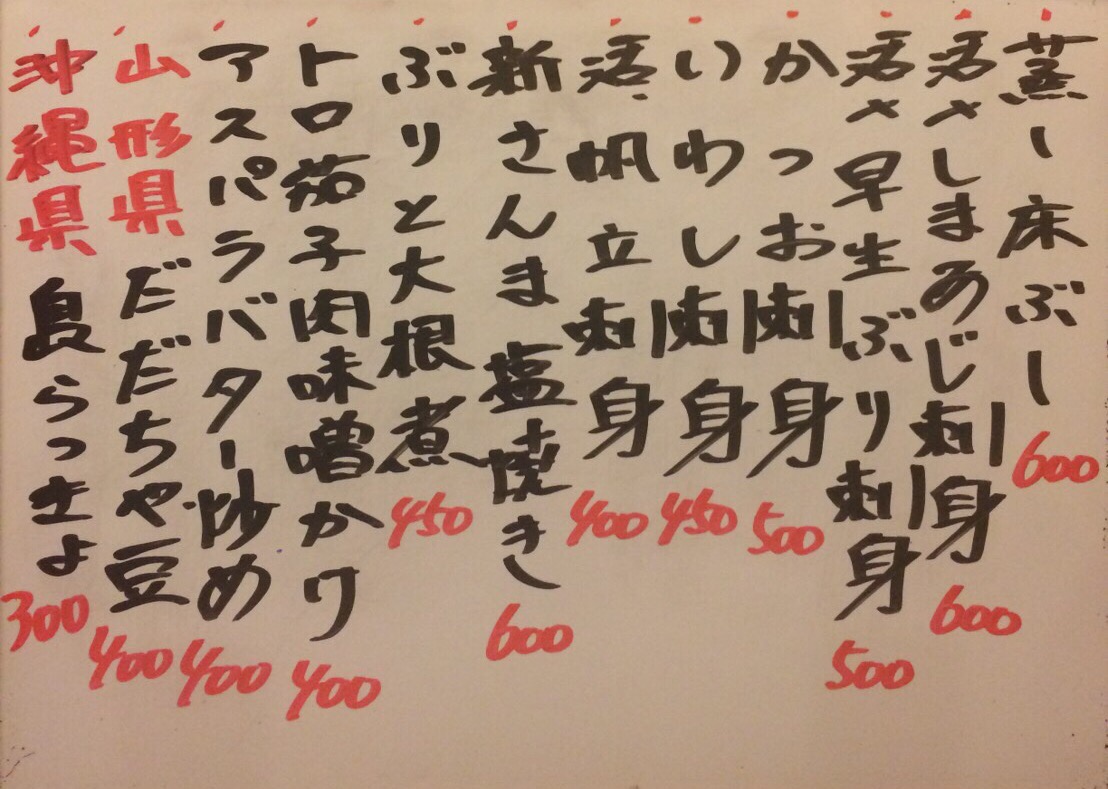 蒸し床ぶし 600
活〆しまあじ刺身 600
活〆早生ぶり刺身 500
かつお刺身 500
いわし刺身 450
活帆立刺身 400
新さんま塩焼き 600
ぶりと大根煮 450
トロ茄子肉味噌かけ 400
アスパラバター炒め 400
山形県だだちゃ豆 400
沖縄県島らっきょ 300